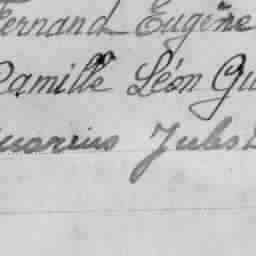 Fernand Eugène
Camille Léon Gu
uarius Jules